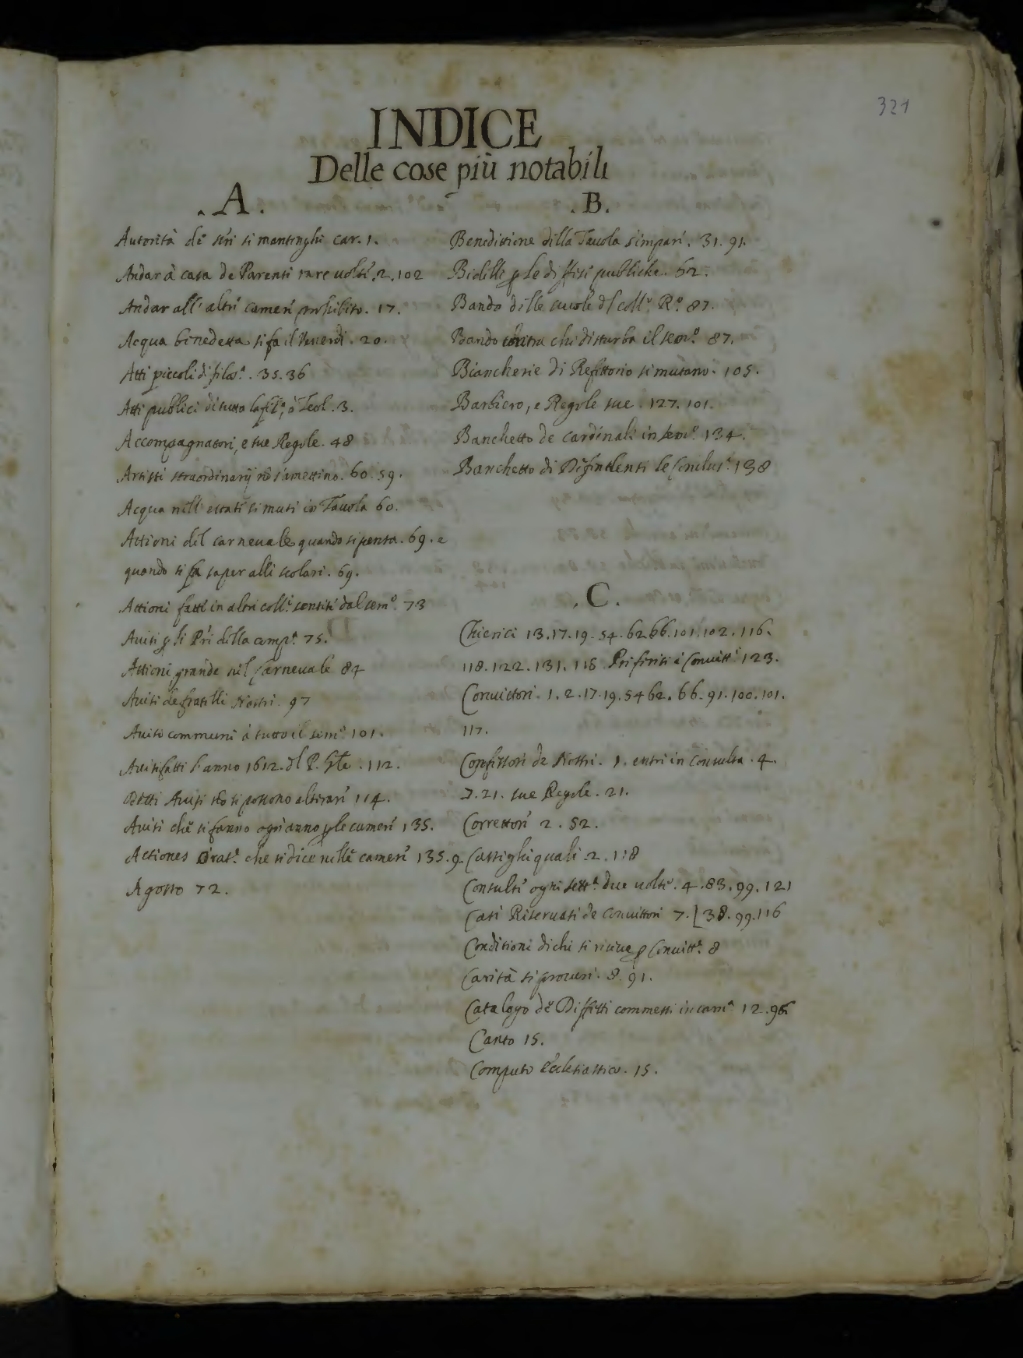 321
INDICE
Delle cose più notabili
.A.
Autorità de si mantenghi car. 1.
Andar à casa de Parenti tre volte. 2. 102
Andar all' altre camere prohibito. 17.
Acqua benedetta si fa il Venerdi. 20.
Atti piccoli di filos.ª . 35. 36
Atti publici di tutta la ò Teol. 3.
Accompagnatori, e sue Regole. 48
Artisti straordinarij nõ s'amettino. 60. 59.
Acqua nell' estate si muti in Tauola 60.
Attioni del carneuale quando si pensa. 69. e
quando si fa saper alli scolari. 69.
Attioni fatte in altri coll. sentiti dal sem.º 73
Auisi ꝑ li Pri della comp.ª 75.
Attione grande nel Carneuale 84
Auisi de fratelli Nostri. 97
Auisi communi à tutto il sem.º 101.
Auisi fatti l'anno 1612. dl P. Gle . 112.
Detti Auisi nõ si possono alterare 114.
Auisi che si fanno ogn'anno ꝑ le camere 135.
Actiones che si dice nelle camere 135. 9
Agosto 72.
.B.
Beneditione della Tauola s'impari. 31. 91.
ꝑ le publiche. 62.
Bando delle dl coll.º R.º 87.
Bando contra chi disturba il sem.º 87.
Biancherie di Refittorio si mutano. 105.
Barbiero, e Regole sue . 127. 101.
Banchetto de Cardinali in sem.º 134.
Banchetto di 138
.C.
Chierici 13. 17. 19. 54. 62. 66. 101. 102. 116.
118. 122. 131. 118 Preferiti à Conuitt.ⁱ 123.
Conuittori. 1. 2. 17. 19. 54 62. 66. 91. 100. 101.
117.
Confessori de Nostri. 1. entri in Consulta. 4.
7. 21. sue Regole. 21.
Correttori 2. 52.
Castighi quali 2. 118
Consulte ogni sett.ª due volte. 4. 83. 99. 121
Casi Riseruati de Conuittori 7. 38. 99. 116
Conditioni di chi si riceue ꝑ Conuitt.ᵉ 8
Carità si procuri. 8 91.
Catalogo de Diffetti commessi in cam.ª 12. 96
Canto 15.
Computo Ecclesiastico. 15.